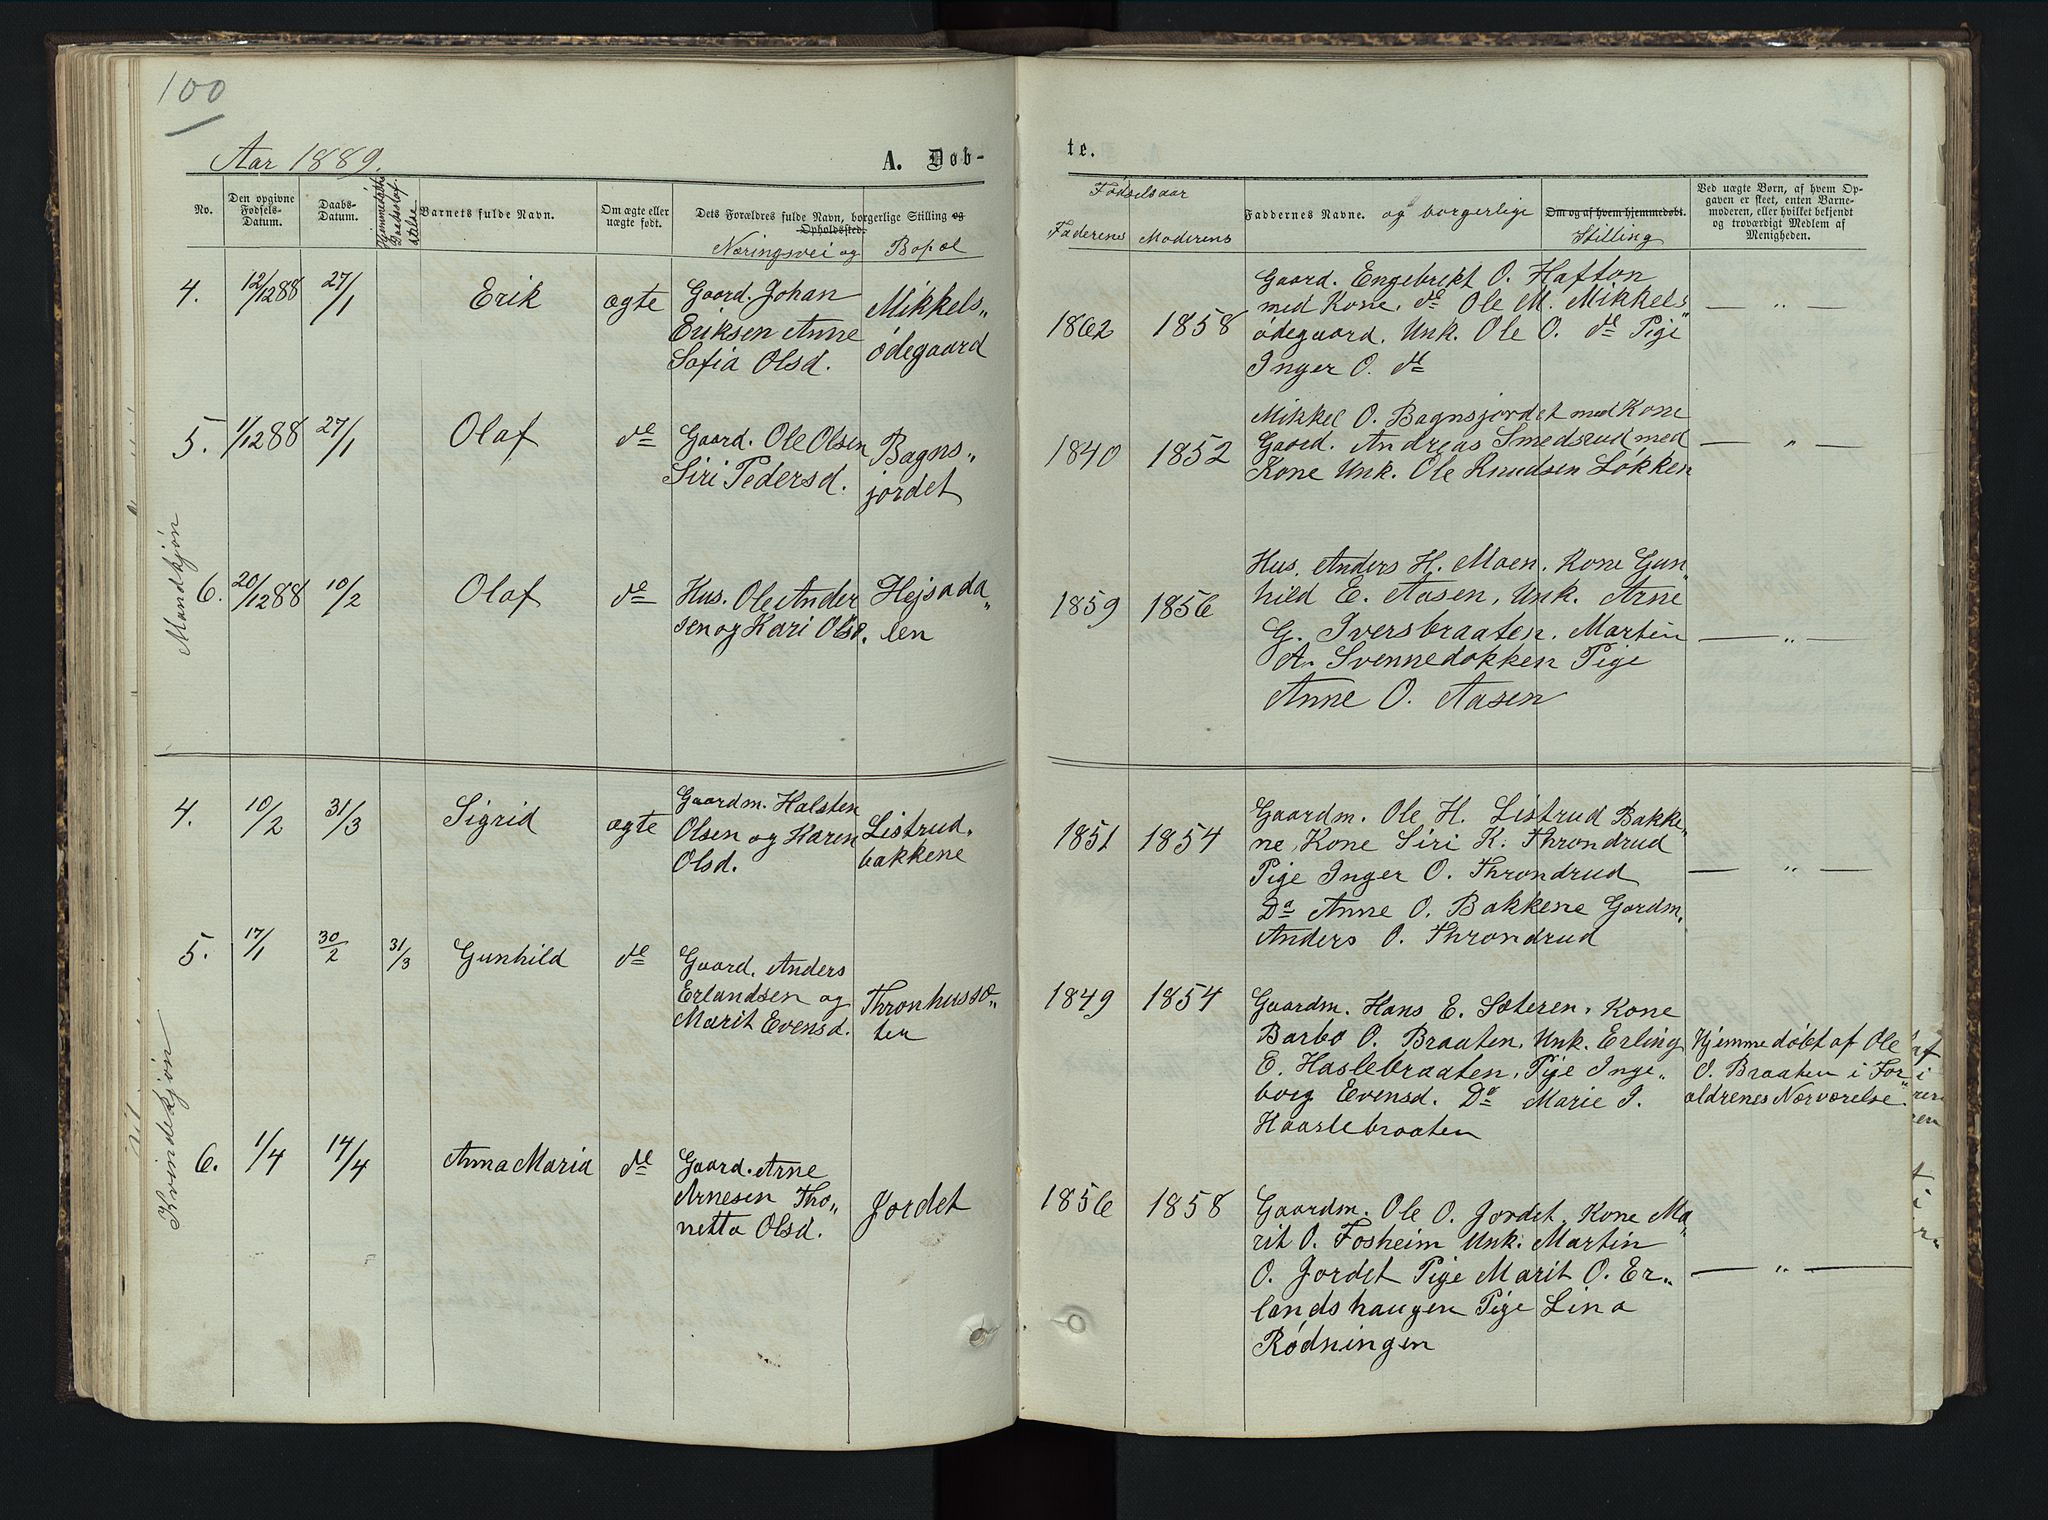 100
Aar 1889.
A. Døb-
No.
Den opgivne Fødsels-Datum.
Daabs-Datum.
Hjemmedøbte
Barnets fulde Navn.
Om ægte eller uægte født.
Dets Forældres fulde Navn, borgerlige Stilling og Opholdssted.
Næringsvei og Bopæl
Mandkjøn
4.
12/12 88
27/1
Erik
ægte
Gaard. Johan
Eriksen Anne
Sofia Olsd.
Mikkels„
ødegaard
5.
1/12 88
27/1
Olaf
de
Gaard. Ole Olsen
Siri Pedersd.
Bagns„
jordet
6.
20/12 88
10/2
Olaf
de
Hus. Ole Ander
sen og Kari Olsd.
Hejsada„
len
Kvindekjøn
4.
10/2
31/3
Sigrid
ægte
Gaardm. Halsten
Olsen og Karen
Olsd.
Listrud„
bakkene
5.
17/1
30/2
31/3
Gunhild
de
Gaard. Anders
Erlandsen og
Marit Evensd.
Thronhussæ„
ter
6.
1/4
14/4
Anna Maria
de
Gaard. Arne
Arnesen Tho„
netta Olsd.
Jordet
te.
Fødselsaar
Faderens
Moderens
Faddernes Navne.
og borgerlige
Om og af hvem hjemmedøbt.
Stilling
Ved uægte Børn, af hvem Op-
gaven er skeet, enten Barne-
moderen, eller hvilket bekjendt
og troværdigt Medlem af
Menigheden.
1862
1858
Gaard. Engebrekt O. Hafton
med Kone. de Ole M. Mikkels„
ødegaard. Unk. Ole O. de Pige
Inger O. de
— „ —
1840
1852
Mikkel O. Bagnsjordet med Kone
Gaard. Andreas Smedsrud med
Kone Unk. Ole Knudsen Løkken
— „ —
1859
1856
Hus. Anders H. Moen. Kone Gun„
hild E. Aasen, Unk. Arne
G. Iversbraaten. Martin
A. Svennedokken Pige
Anne O. Aasen
— „ —
1851
1854
Gaardm. Ole H. Listrud Bakke„
ne, Kone Siri K. Throndrud
Pige Inger O. Throndrud
Do Anne O. Bakkene Gardm.
Anders O. Throndrud
— „ —
1849
1854
Gaardm. Hans E. Sæteren. Kone
Barbo O. Braaten. Unk. Erling
E. Haslebraaten. Pige Inge„
borg Evensd. Do Marie I.
Haaslebraaten
Hjemmedøbt af Ole
O. Braaten i For„
ældrenes Nærværelse.
1856
1858
Gaardm. Ole O. Jordet. Kone Ma„
rit O. Fosheim Unk. Martin
O. Jordet Pige Marit O. Er„
landshaugen Pige Lina
Rødningen
— „ —